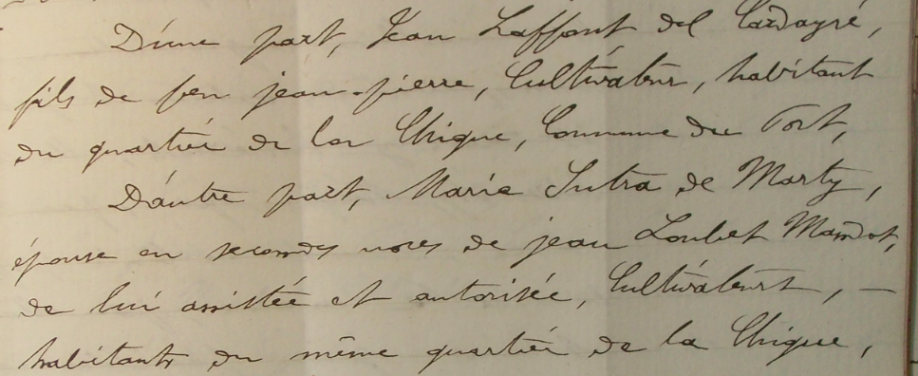 D'une part, Jean Laffont del Cazdayré,
fils de feu jean-pierre, Cultivateur, habitant
du quartier de la Chique, Commune du Port,
D'autre part, Marie Sutra de Marty,
épouse en secondes noces de jean Loubet Mandot,
de lui assistée et autorisée, Cultivateurs, —
habitants du même quartier de la Chique,